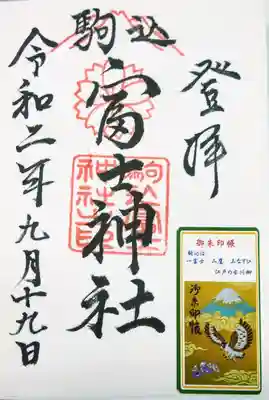 登拝
駒込
富士神社
令和二年九月十九日
御朱印帳
駒込は
一富士 二鷹 三なすび
江戸の古川柳
御朱印帳